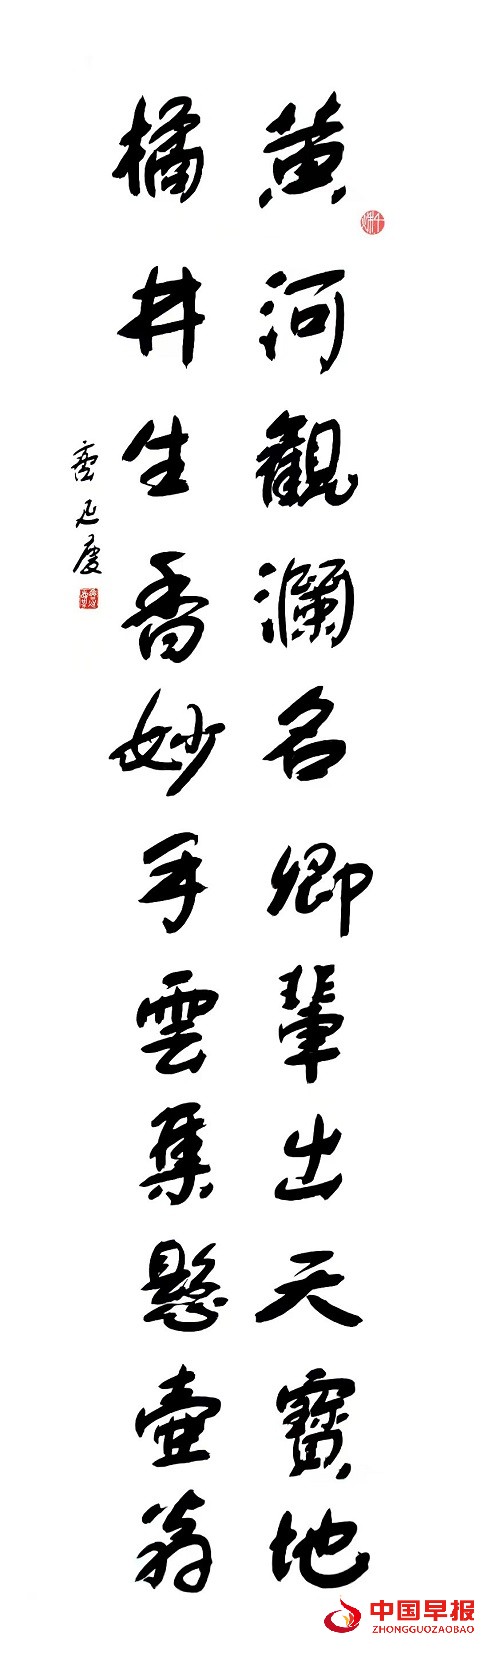 黄河觀瀾名卿輩出天寶地
橘井生香妙手雲集懸壺翁
延慶
中国早报
ZHONGGUOZAOBAO